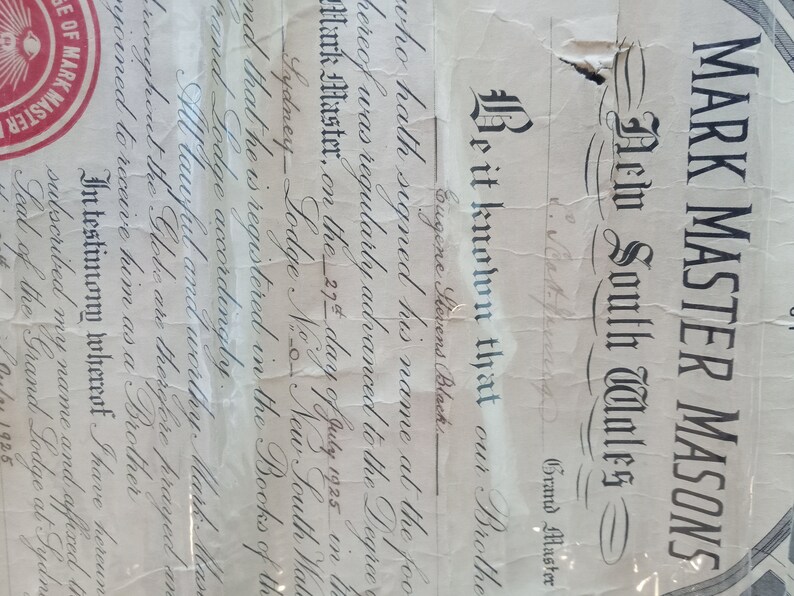 MARK MASTER MASONS
New South Wales
Grand Master
Be it known that our Brothe
Eugene Stevens Black
who hath signed his name at the foo
hereof was regularly advanced to the Degree o
Mark Master, on the 27th day of July 1925 in th
Sydney Lodge No. 0 New South Wale
nd that he is registered in the Books of th
rand Lodge acordingly.
All lawful and worthy Mark Mas
hroughout the Globe are therefore prayed an
njoined to receive him as a Brother
In testimony whereof I have hereun
subscribed my name and affixed th
Seal of the Grand Lodge at Sydn
July 1925
GE OF MARK MASTER